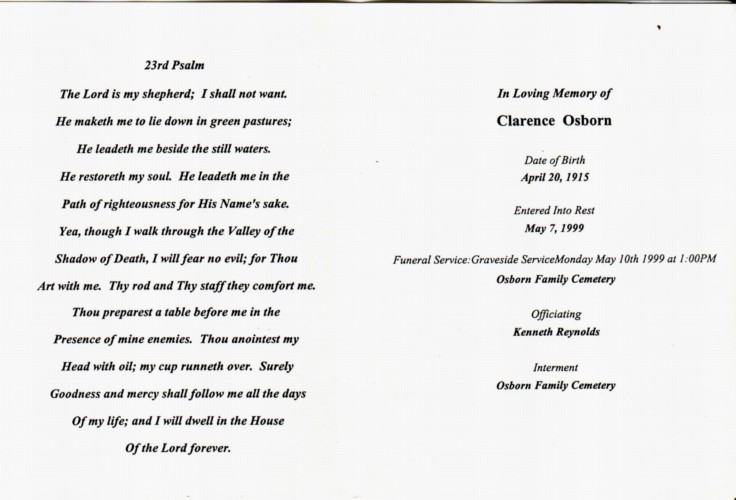 23rd Psalm
The Lord is my shepherd; I shall not want.
He maketh me to lie down in green pastures;
He leadeth me beside the still waters.
He restoreth my soul. He leadeth me in the
Path of righteousness for His Name's sake.
Yea, though I walk through the Valley of the
Shadow of Death, I will fear no evil; for Thou
Art with me. Thy rod and Thy staff they comfort me.
Thou preparest a table before me in the
Presence of mine enemies. Thou anointest my
Head with oil; my cup runneth over. Surely
Goodness and mercy shall follow me all the days
Of my life; and I will dwell in the House
Of the Lord forever.
In Loving Memory of
Clarence Osborn
Date of Birth
April 20, 1915
Entered Into Rest
May 7, 1999
Funeral Service:Graveside ServiceMonday May 10th 1999 at 1:00PM
Osborn Family Cemetery
Officiating
Kenneth Reynolds
Interment
Osborn Family Cemetery